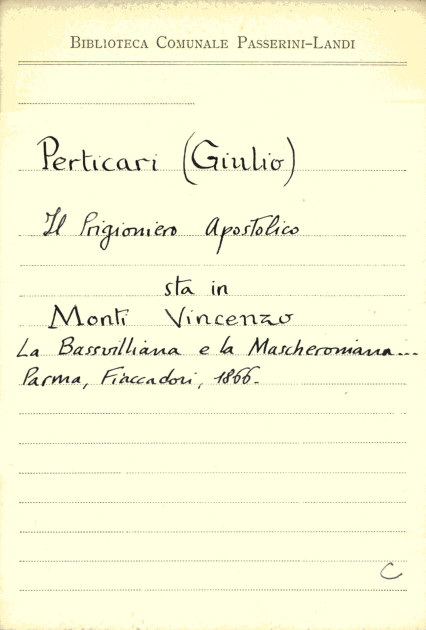 BIBLIOTECA COMUNALE PASSERINI-LANDI
Perticari (Giulio)
Il Prigioniero Apostolico
sta in
Monti Vincenzo
La Bassvilliana e la Mascheroniana...
Parma, Fiaccadori, 1866.
C